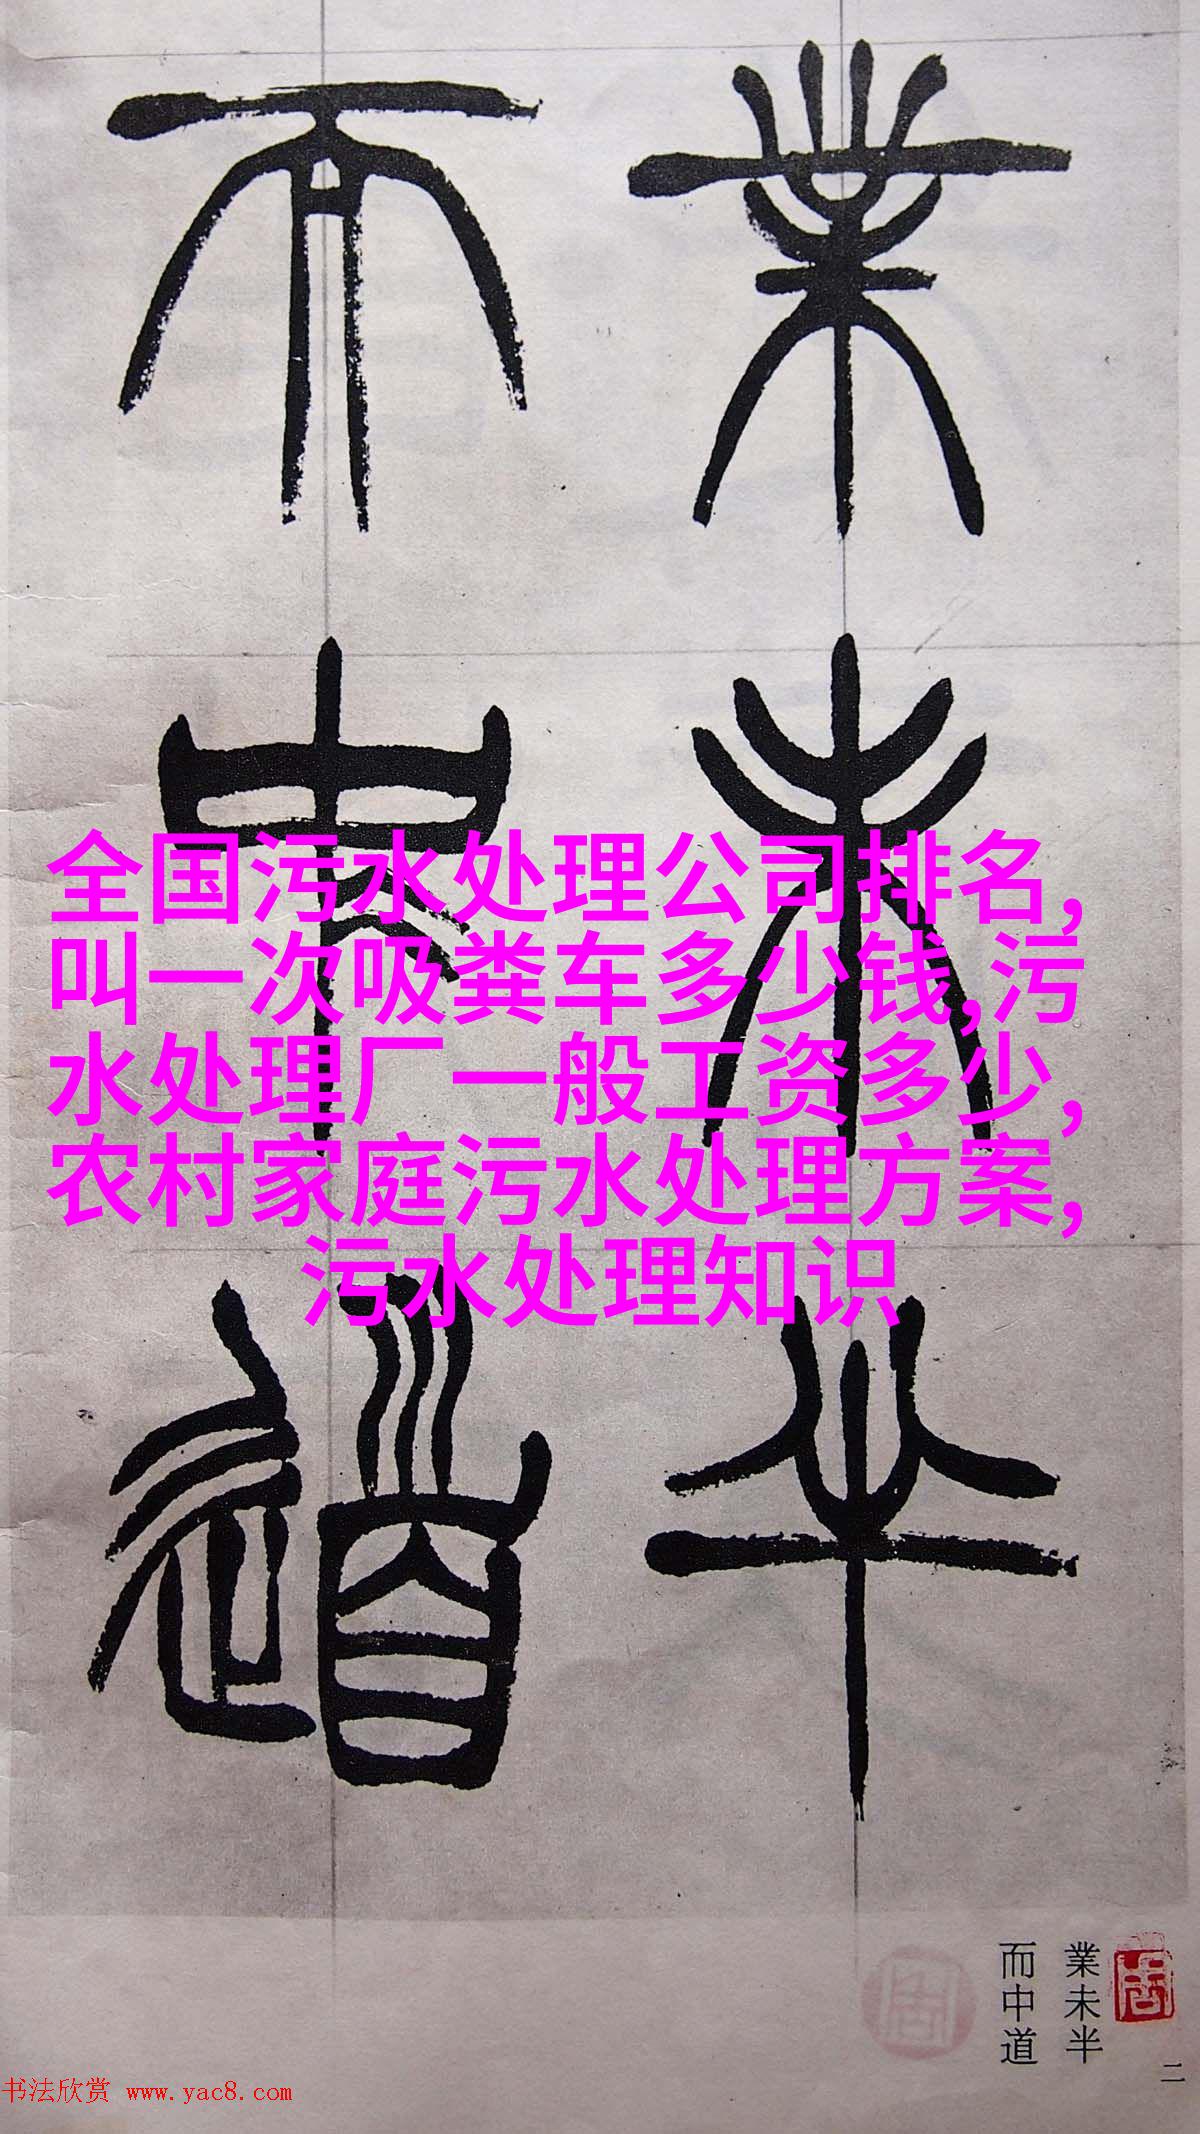 業未半
而中道
全国污水处理公司排名,
叫一次吸粪车多少钱,污
水处理厂一般工资多少,
农村家庭污水处理方案,
污水处理知识
業未半
而中道
二
书法欣赏 www.yac8.com